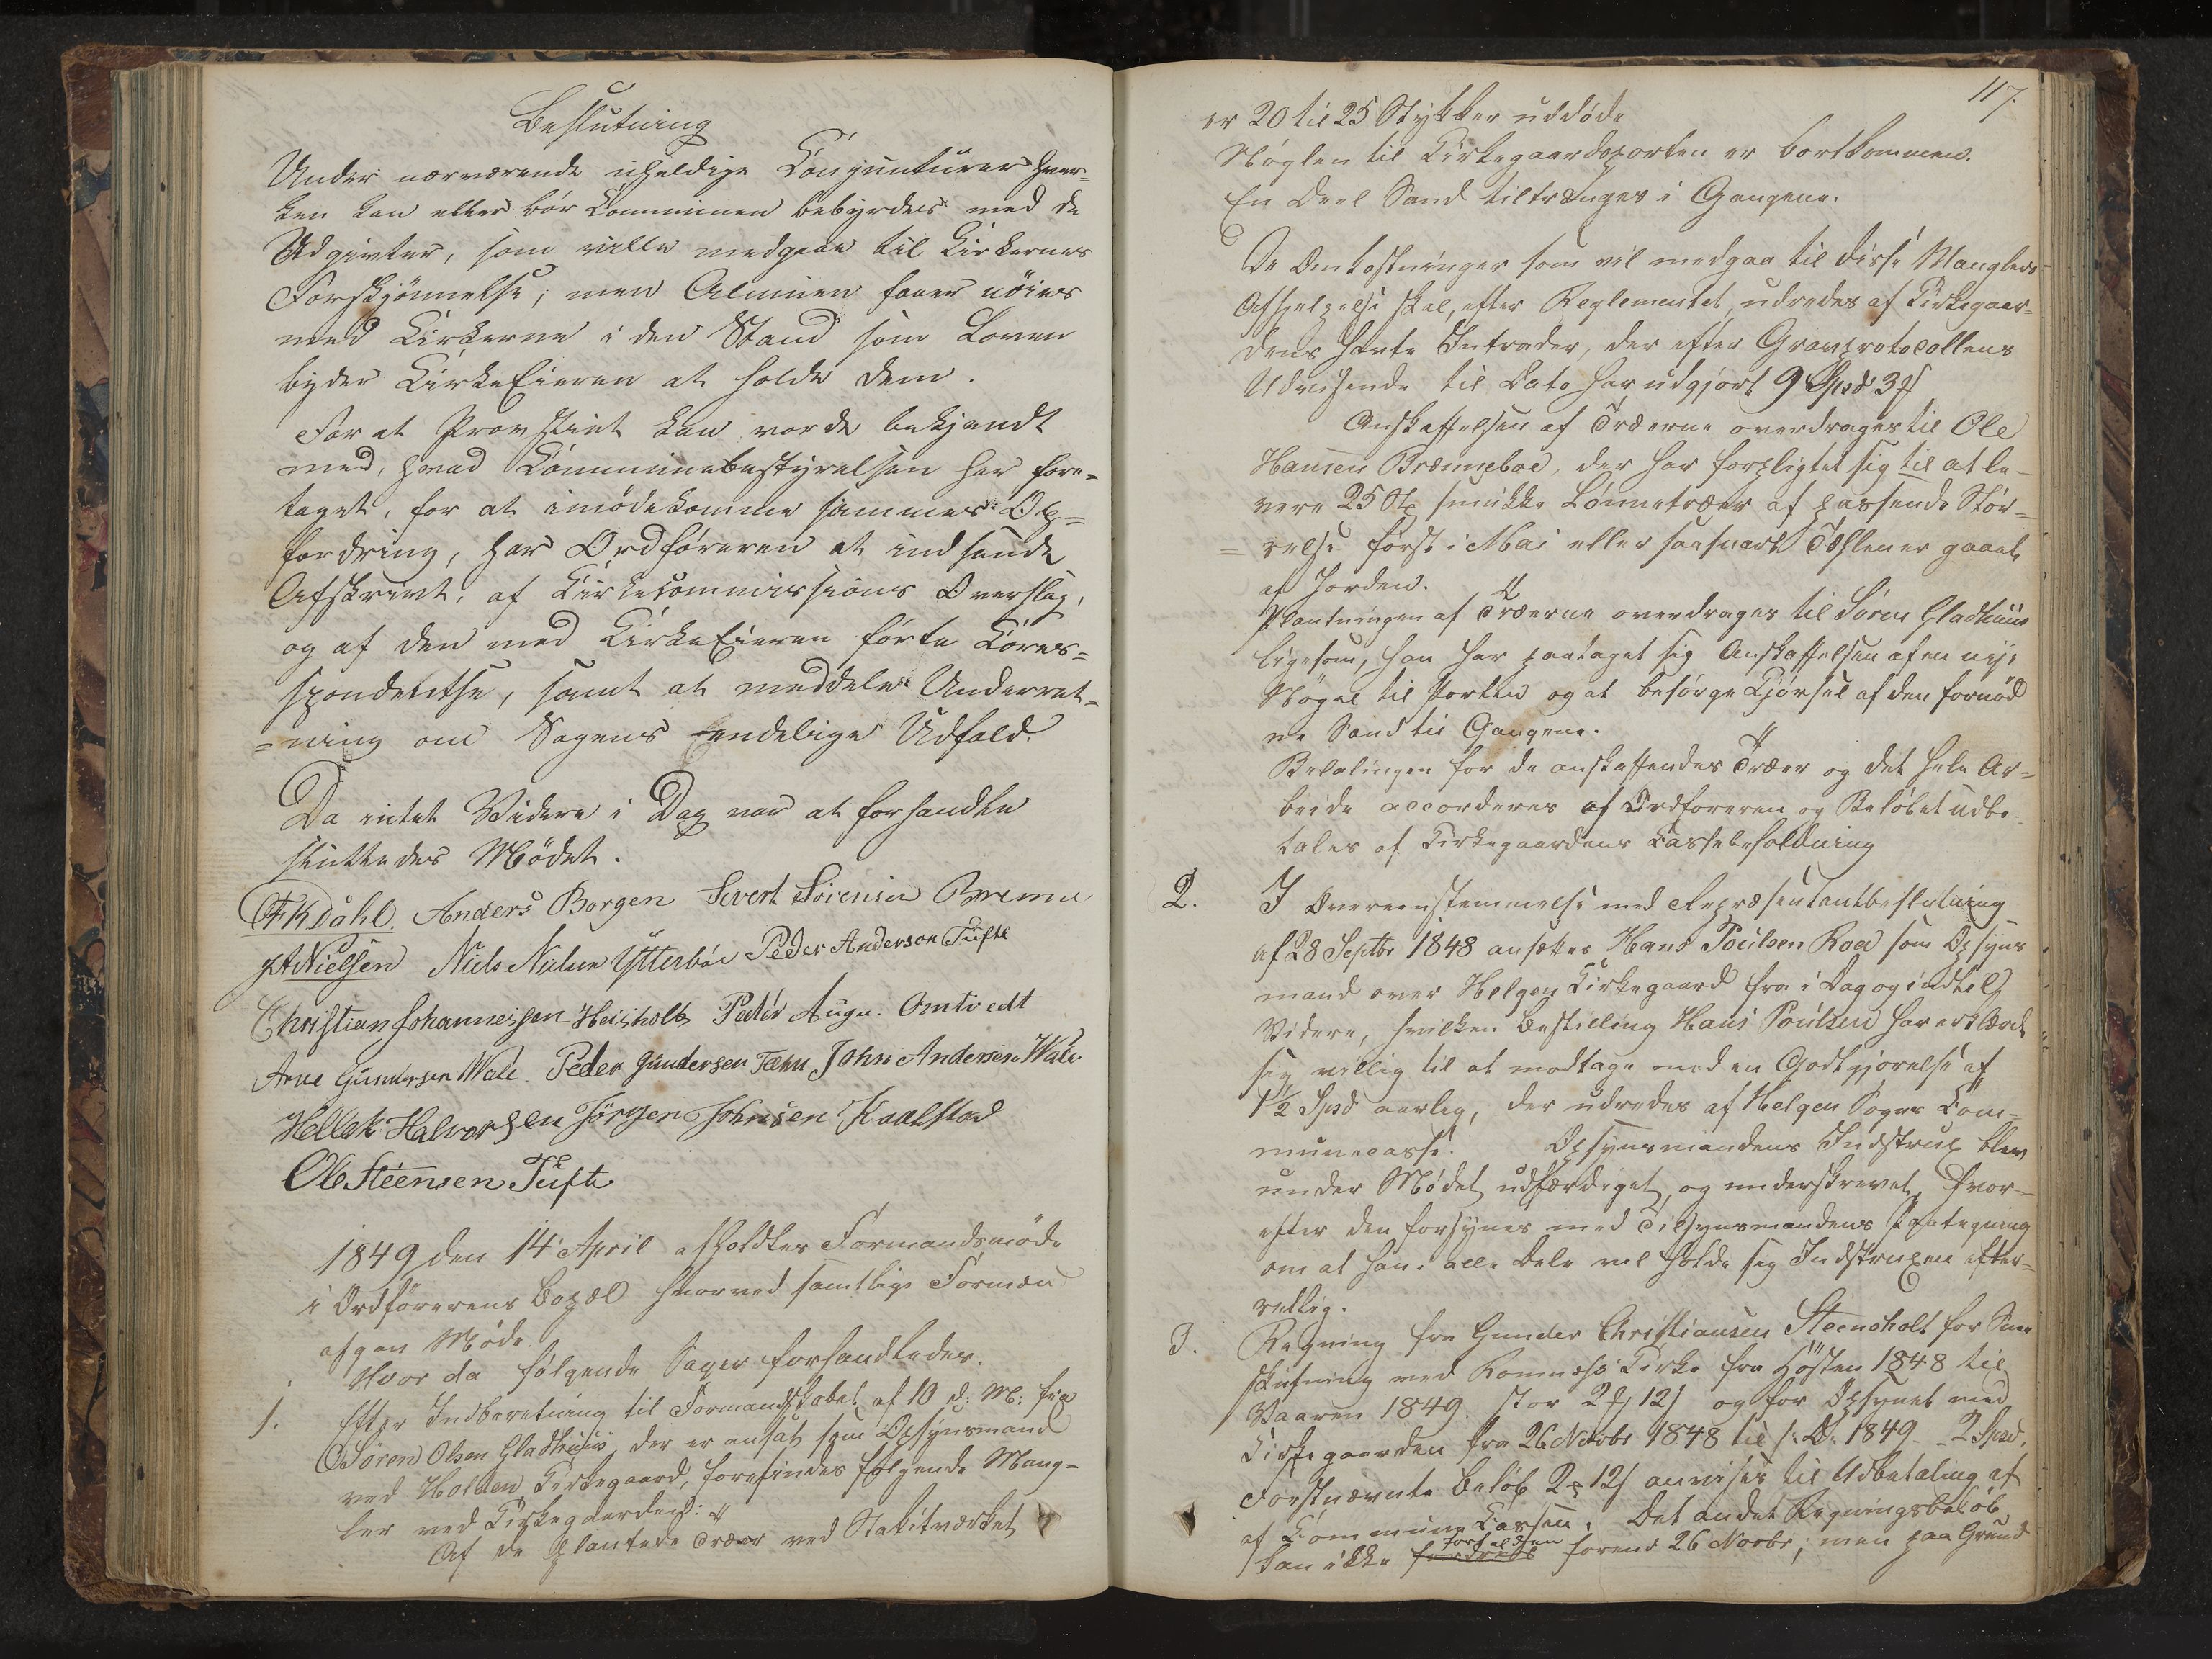 Beslutning
Under nærværende uheldige Conjuncturer hver-
ken kan eller bør Communen bebyrdes med de
Udgivter, som ville medgaae til Kirkernes
Forskjønnelse; men Almuen faaer nöies
med Kirkerne i den Stand som Loven
byder KirkeEieren at holde dem.
For at Provstiet kan vorde bekjendt
med, hvad Communebestyrelsen har fore-
taget, for at imödekomme sammes Op-
fordring, har Ordföreren at indsende
Afskrivt, af Kirkecommissions Overslag,
og af den med KirkeEieren förte Corres-
spondentse, samt at meddele Underret-
=ning om Sagens endelige Udfald.
Da intet Videre i Dag var at forhandle
sluttedes Mödet.
FKDahl. Anders Borgen Sivert Sörensen Bremu
JANielsen Niels Nielsen Ytterböe Peder Anderson Tufte
Christian Johannessen Heisholt Peder Augu. Omtvedt
Arne Gundersen Wale. Peder Gundersen Tæhn John Andersen Wale
Hellek Halvorsen Jörgen Johnsen Kaalstad
Ole Steensen Tufte
1849 den 14 April afholdtes Formandsmöde
i Ordförerens Bopæl hvorved samtlige Formæn
afgav Möde.
Hvor da følgende Sager forhandledes.
1. Efter Indberetning til Formandskabet af 10 d: M: fra
Søren Olsen Gladhuus, der er ansat som Opsynsmand
ved Holden Kirkegaard, forefindes følgende Mang-
ler ved Kirkegaarden:
Af de plantede Træer ved Stakitværket
117.
er 20 til 25 Stykker uddøde
Nøglen til Kirkegaardsporten er bortkommen.
En Deel Sand tiltrænges i Gangene.
De Omkostninger som vil medgaa til disse Manglers
Afhjelpelse skal, efter Reglementet, udredes af Kirkegaar-
dens havte Intrader, der efter Gravprotocollens
Udvisende til Dato har udgjort 9 Spd 3
Anskaffelsen af Træerne overdrages til Ole
Hansen Brænneboe, der har forpligtet sig til at le-
vere 25 St smukke Lønnetræer af passende Stør-
=relse først i Mai eller saasnart Tæhlen er gaaet
af Jorden.
Plantningen af Træerne overdrages til Søren Gladhuus
ligesom, han har paataget sig Anskaffelsen af en nye
Nøgel til Porten og at besørge Kjørsel af den fornød
ne Sand til Gangene.
Betalingen for de anskaffendes Træer og det hele Ar-
beide accorderes af Ordføreren og Beløbet udbe-
tales af Kirkegaardens Cassebeholdning
2. I Overeenstemmelse med Repræsentantbeslutning
af 28 Septbr 1848 ansættes Hans Poulsen Roa som Opsyns
mand over Helgen Kirkegaard fra i Dag og indtil
Videre, hvilken Bestilling Hans Poulsen har erklæret
sig villig til at modtage med en Godtgjørelse af
1½ Spd aarlig, der udredes af Helgen Sogns Com-
munecasse. Opsynsmandens Indstrux blev
under Mødet udfærdiget, og underskrevet, hvor-
efter den forsynes med Tilsynsmandens Paategning
om at han i alle Dele vil holde sig Indstruxen efter-
rettlig.
3. Regning fra Gunder Christiansen Steensholt for Snee
skufning ved Romnæss Kirke fra Høsten 1848 til
Vaaren 1849 stor 2 12 og for Opsynet med
Kirkegaarden fra 26 Novbr 1848 til s: D: 1849 - 2 Spd.
Førstnævnte Beløb 2 12 anvises til Udbetaling af
af Commune Cassen. Det andet Regningsbeløb
kan ikke forfaldten førend 26 Novbr; men paa Grund